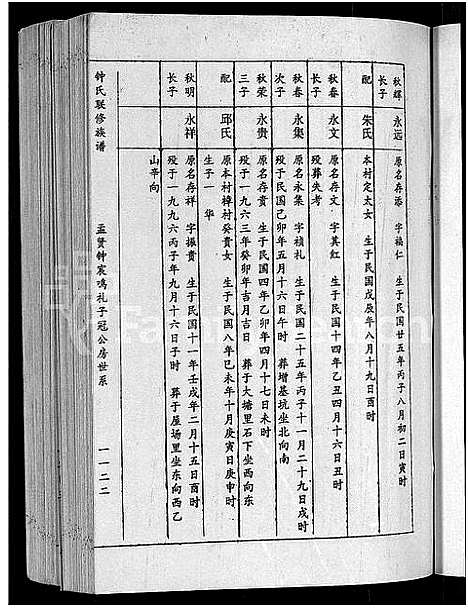 秋辉长子 永远 原名存添 字福仁 生于民国廿五年丙子八月初二日寅时
配 朱氏 本村定太女 生于民国戊辰年八月十九日酉时
秋春长子 永文 原名存文 字其红 生于民国十四年乙丑四月十六日丑时
殁葬失考
秋春次子 永集 原名永集 字祯礼 生于民国二十五年丙子十一月二十九日戌时
殁于民国己卯年五月十六日午时 葬增基坑坐北向南
秋荣三子 永贵 原名存贵 生于民国四年乙卯年四月十七日未时
殁于一九六三年癸卯年吉月吉日 葬于大塘里石下坐西向东
配 邱氏 原本村樟村癸贵女 生于民国八年己未年十月庚寅日庚申时
生子一 华
秋明长子 永祥 原名存祥 字振贵 生于民国十一年壬戌年二月十五日酉时
殁于一九九六丙子年九月十六日子时 葬于屋场里坐东向西乙
山辛向
钟氏联修族谱 孟贤钟宸鸣礼子冠公房世系 一一二二